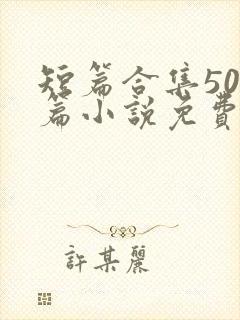 短篇合集50
篇小說免費
許某麗